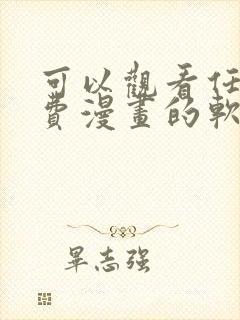 可以觀看任
費漫畫的軟
畢志強